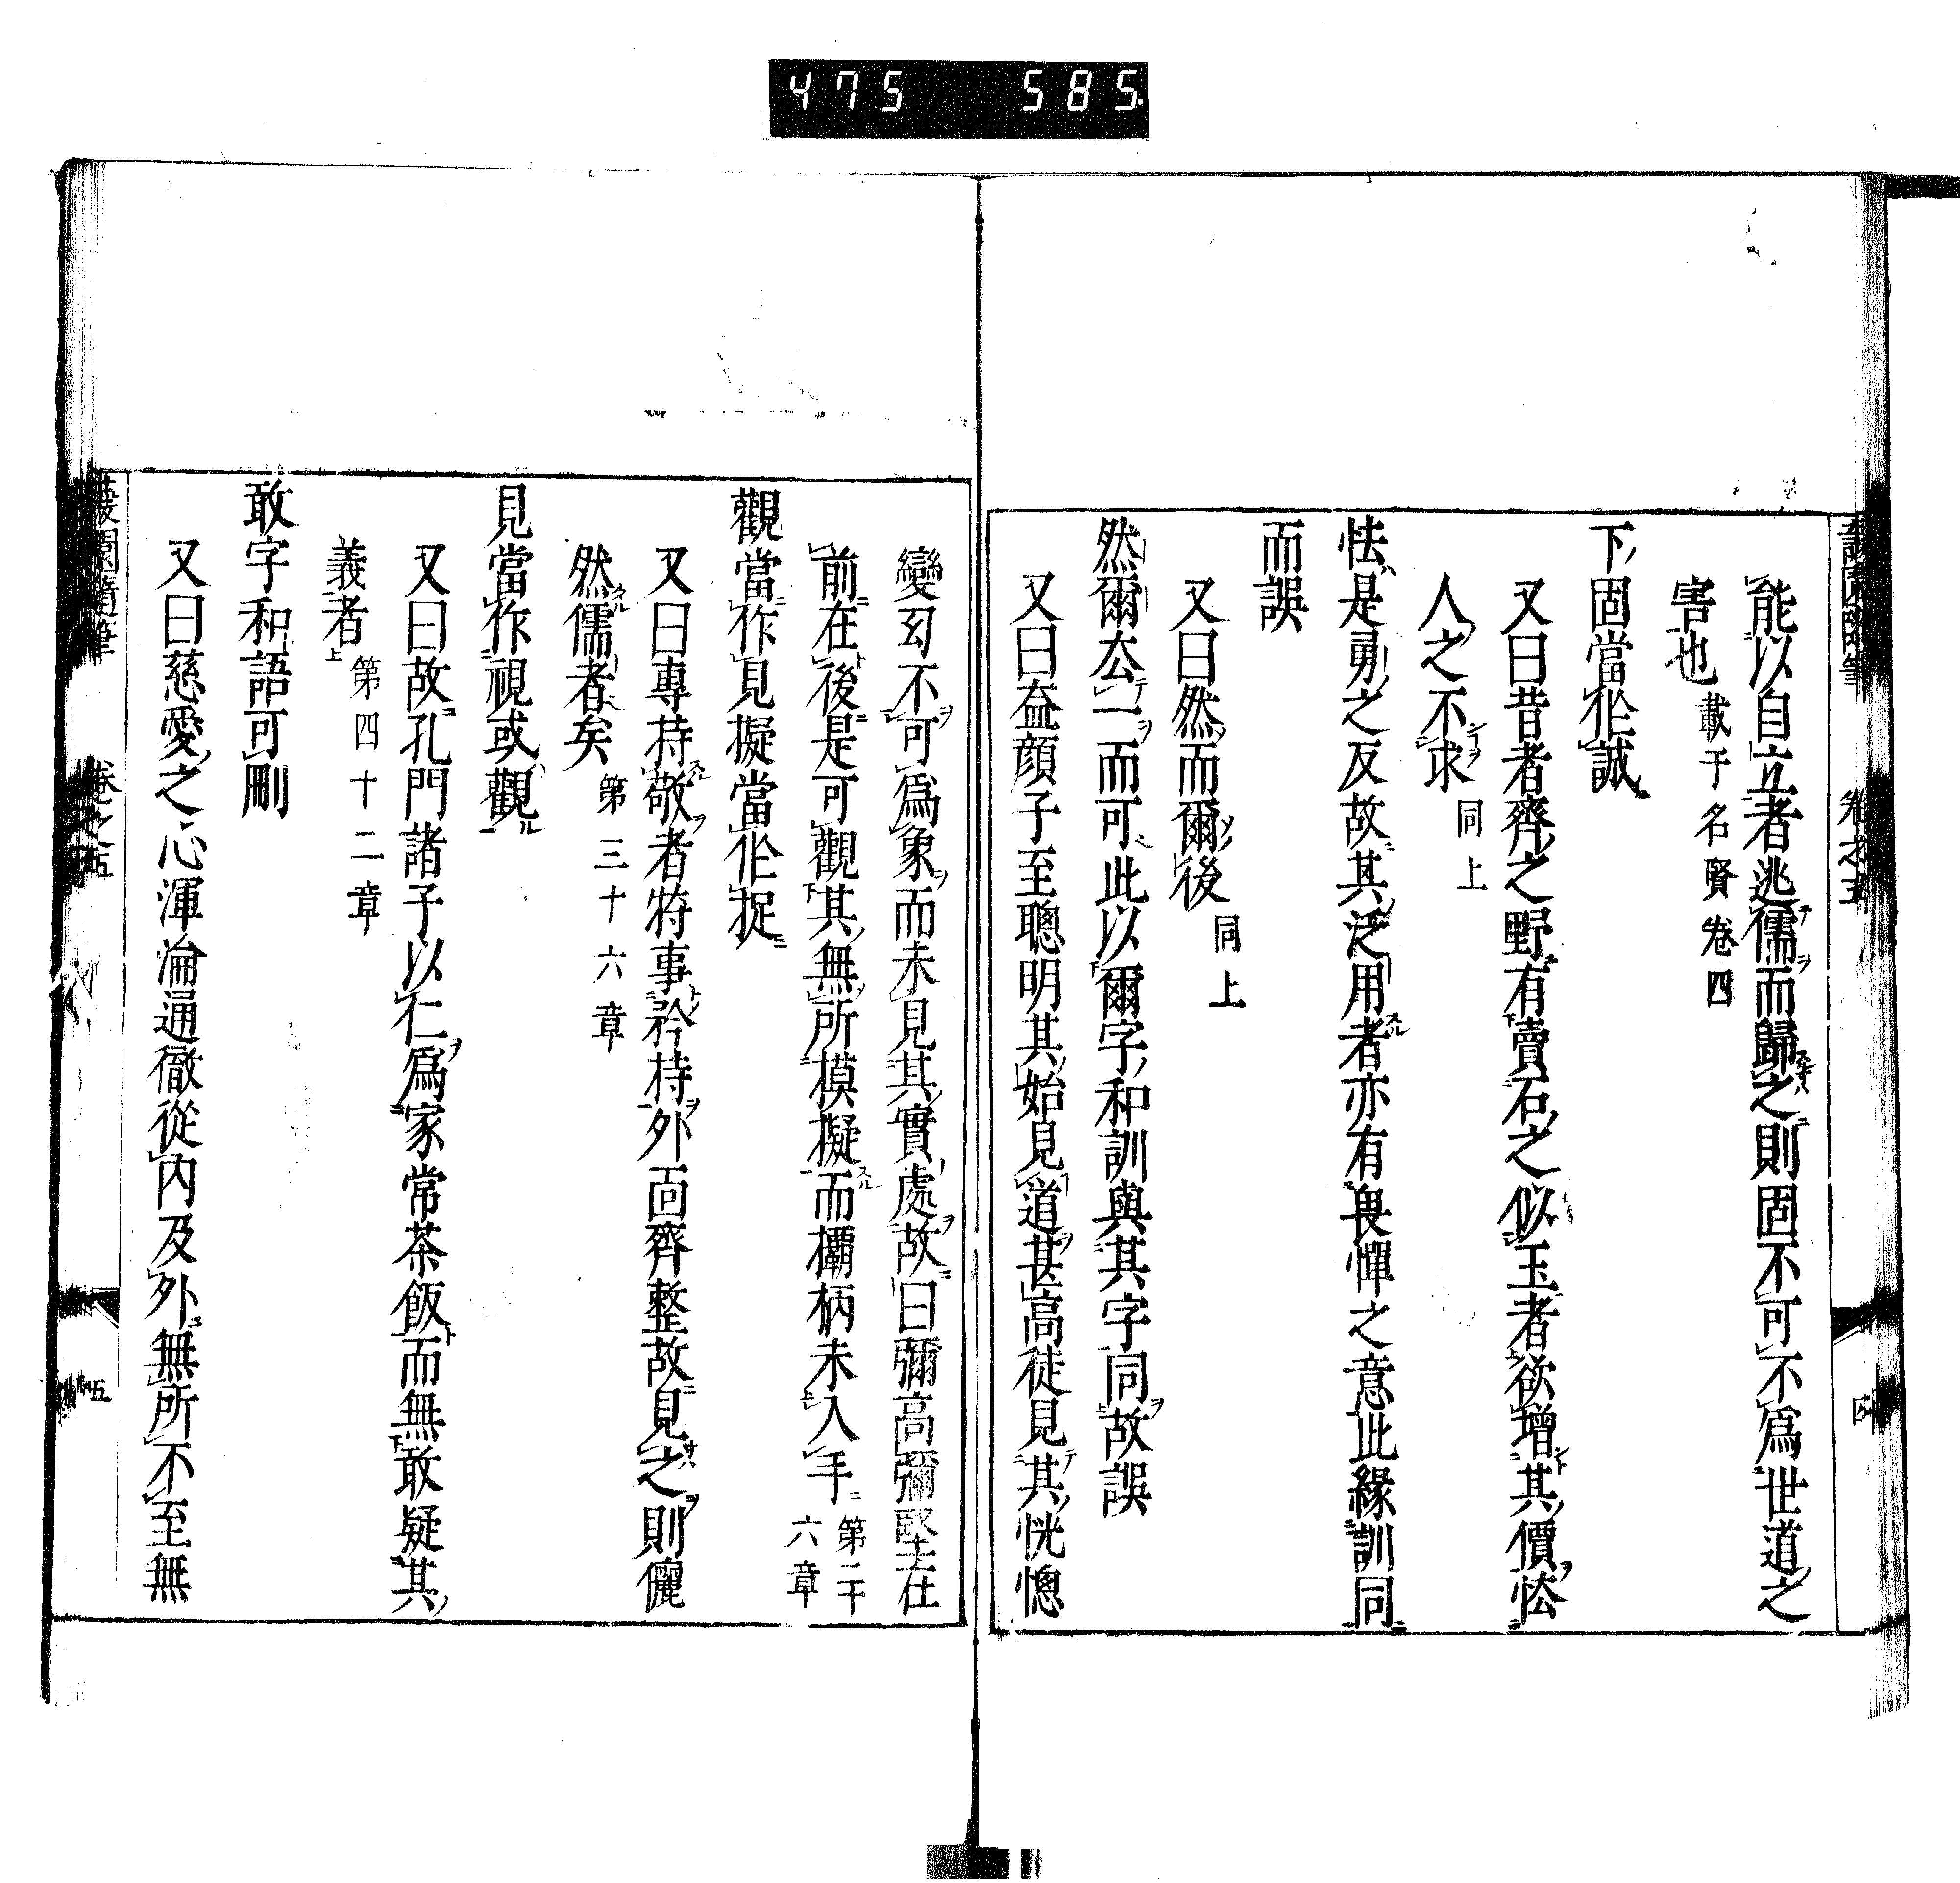 475 585
能以自立者逃儒而歸之則固不可不爲世道之
害也載于名賢卷四
下固當作誠
又曰昔者齊之野有賣石之似玉者欲增其價怯
人之不求同上
怯是勇之反故其泛用者亦有畏憚之意此緣訓同
而誤
又曰然而爾後同上
然爾厺一而可此以爾字和訓與其字同故誤
又曰益顏子至聰明其始見道甚高徒見其恍惚
變幻不可爲象而未見其實處故曰彌高彌堅在
前在後是可觀其無所模擬而欛柄未入手第二十六章
觀當作見擬當作捉
又曰專持敬者特事矜持外面齊整故見之則儼
然儒者矣第三十六章
見當作視或觀
又曰故孔門諸子以仁爲家常茶飯而無敢疑其
義者第四十二章
敢字和語可刪
又曰慈愛之心渾淪通徹從內及外無所不至無
蘐園隨筆 卷之五 五